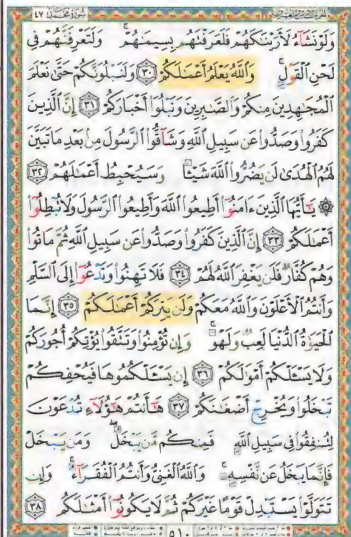 سورة محمد ٤٧
وَلَوْ نَشَآءُ لَأَرَيْنَٰكَهُمْ فَلَعَرَفْتَهُم بِسِيمَٰهُمْ ۚ وَلَتَعْرِفَنَّهُمْ فِى
لَحْنِ ٱلْقَوْلِ ۚ وَٱللَّهُ يَعْلَمُ أَعْمَٰلَكُمْ ٣٠ وَلَنَبْلُوَنَّكُمْ حَتَّىٰ نَعْلَمَ
ٱلْمُجَٰهِدِينَ مِنكُمْ وَٱلصَّٰبِرِينَ وَنَبْلُوَا۟ أَخْبَارَكُمْ ٣١ إِنَّ ٱلَّذِينَ
كَفَرُوا۟ وَصَدُّوا۟ عَن سَبِيلِ ٱللَّهِ وَشَآقُّوا۟ ٱلرَّسُولَ مِنۢ بَعْدِ مَا تَبَيَّنَ
لَهُمُ ٱلْهُدَىٰ لَن يَضُرُّوا۟ ٱللَّهَ شَيْـًٔا وَسَيُحْبِطُ أَعْمَٰلَهُمْ ٣٢
۞ يَٰٓأَيُّهَا ٱلَّذِينَ ءَامَنُوٓا۟ أَطِيعُوا۟ ٱللَّهَ وَأَطِيعُوا۟ ٱلرَّسُولَ وَلَا تُبْطِلُوٓا۟
أَعْمَٰلَكُمْ ٣٣ إِنَّ ٱلَّذِينَ كَفَرُوا۟ وَصَدُّوا۟ عَن سَبِيلِ ٱللَّهِ ثُمَّ مَاتُوا۟
وَهُمْ كُفَّارٌ فَلَن يَغْفِرَ ٱللَّهُ لَهُمْ ٣٤ فَلَا تَهِنُوا۟ وَتَدْعُوٓا۟ إِلَى ٱلسَّلْمِ
وَأَنتُمُ ٱلْأَعْلَوْنَ وَٱللَّهُ مَعَكُمْ وَلَن يَتِرَكُمْ أَعْمَٰلَكُمْ ٣٥ إِنَّمَا
ٱلْحَيَوٰةُ ٱلدُّنْيَا لَعِبٌ وَلَهْوٌ ۚ وَإِن تُؤْمِنُوا۟ وَتَتَّقُوا۟ يُؤْتِكُمْ أُجُورَكُمْ
وَلَا يَسْـَٔلْكُمْ أَمْوَٰلَكُمْ ٣٦ إِن يَسْـَٔلْكُمُوهَا فَيُحْفِكُمْ
تَبْخَلُوا۟ وَيُخْرِجْ أَضْغَٰنَكُمْ ٣٧ هَٰٓأَنتُمْ هَٰٓؤُلَآءِ تُدْعَوْنَ
لِتُنفِقُوا۟ فِى سَبِيلِ ٱللَّهِ فَمِنكُم مَّن يَبْخَلُ ۖ وَمَن يَبْخَلْ
فَإِنَّمَا يَبْخَلُ عَن نَّفْسِهِۦ ۚ وَٱللَّهُ ٱلْغَنِىُّ وَأَنتُمُ ٱلْفُقَرَآءُ ۚ وَإِن
تَتَوَلَّوْا۟ يَسْتَبْدِلْ قَوْمًا غَيْرَكُمْ ثُمَّ لَا يَكُونُوٓا۟ أَمْثَٰلَكُم ٣٨
٥١٠